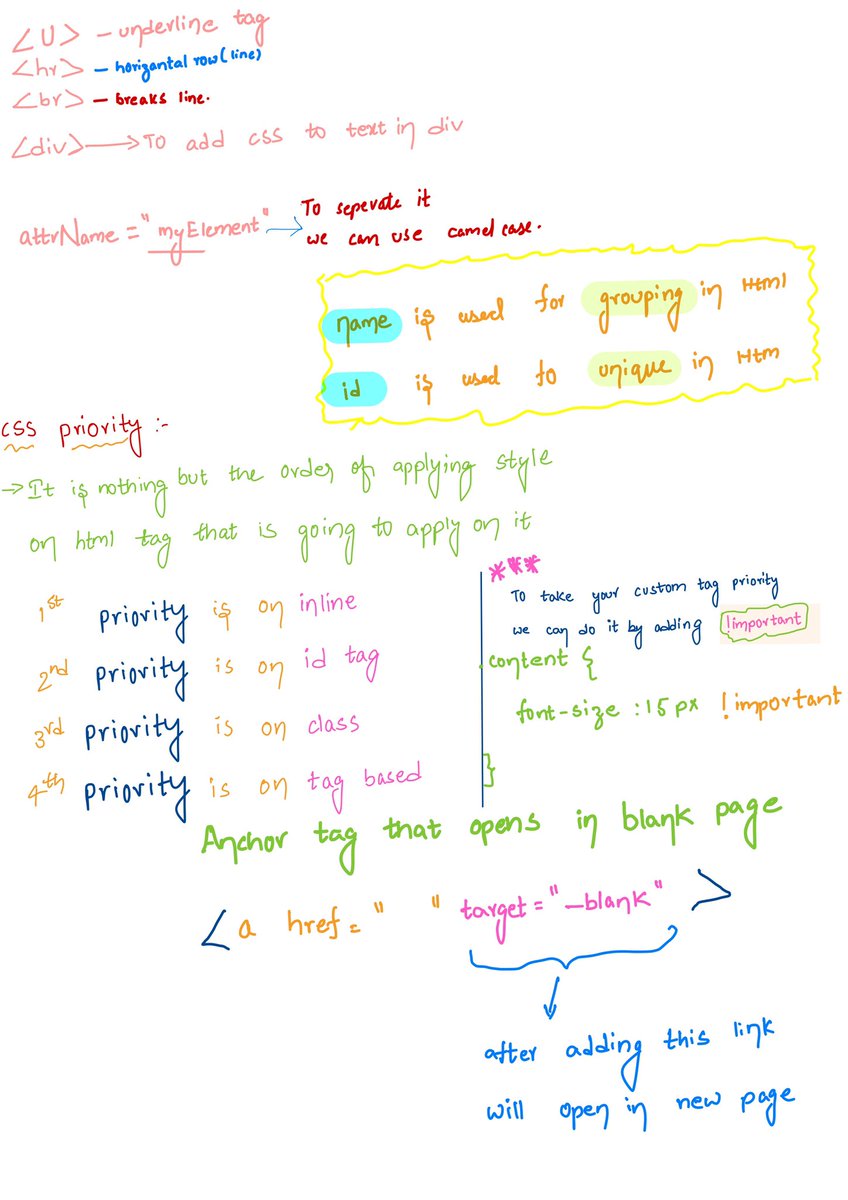 <U> - underline tag
<hr> - horizantal row(line)
<br> - breaks line.
<div> → To add css to text in div
attrName = "myElement" → To seperate it
we can use camel case.
name is used for grouping in Html
id is used to unique in Htm
css priority :-
→ It is nothing but the order of applying style
on html tag that is going to apply on it
1st priority is on inline
2nd priority is on id tag
3rd priority is on class
4th priority is on tag based
***
To take your custom tag priority
we can do it by adding !important
content {
font-size : 15px !important
}
Anchor tag that opens in blank page
<a href = " " target = "_blank" >
after adding this link
will open in new page